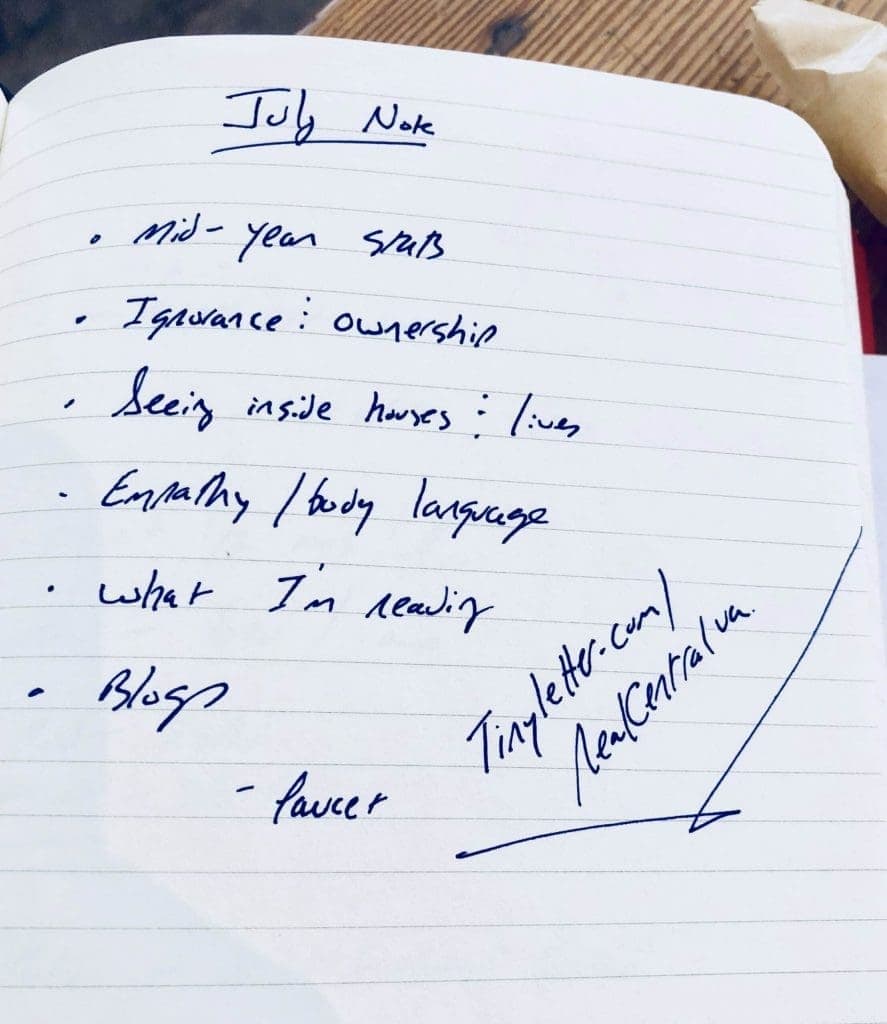 July Note
• Mid-year stats
• Ignorance ÷ ownership
• Seeing inside houses ÷ lives
• Empathy / body language
• What I'm reading
• Blogs
- faucet
Tinyletter.com/
RealCentralva.